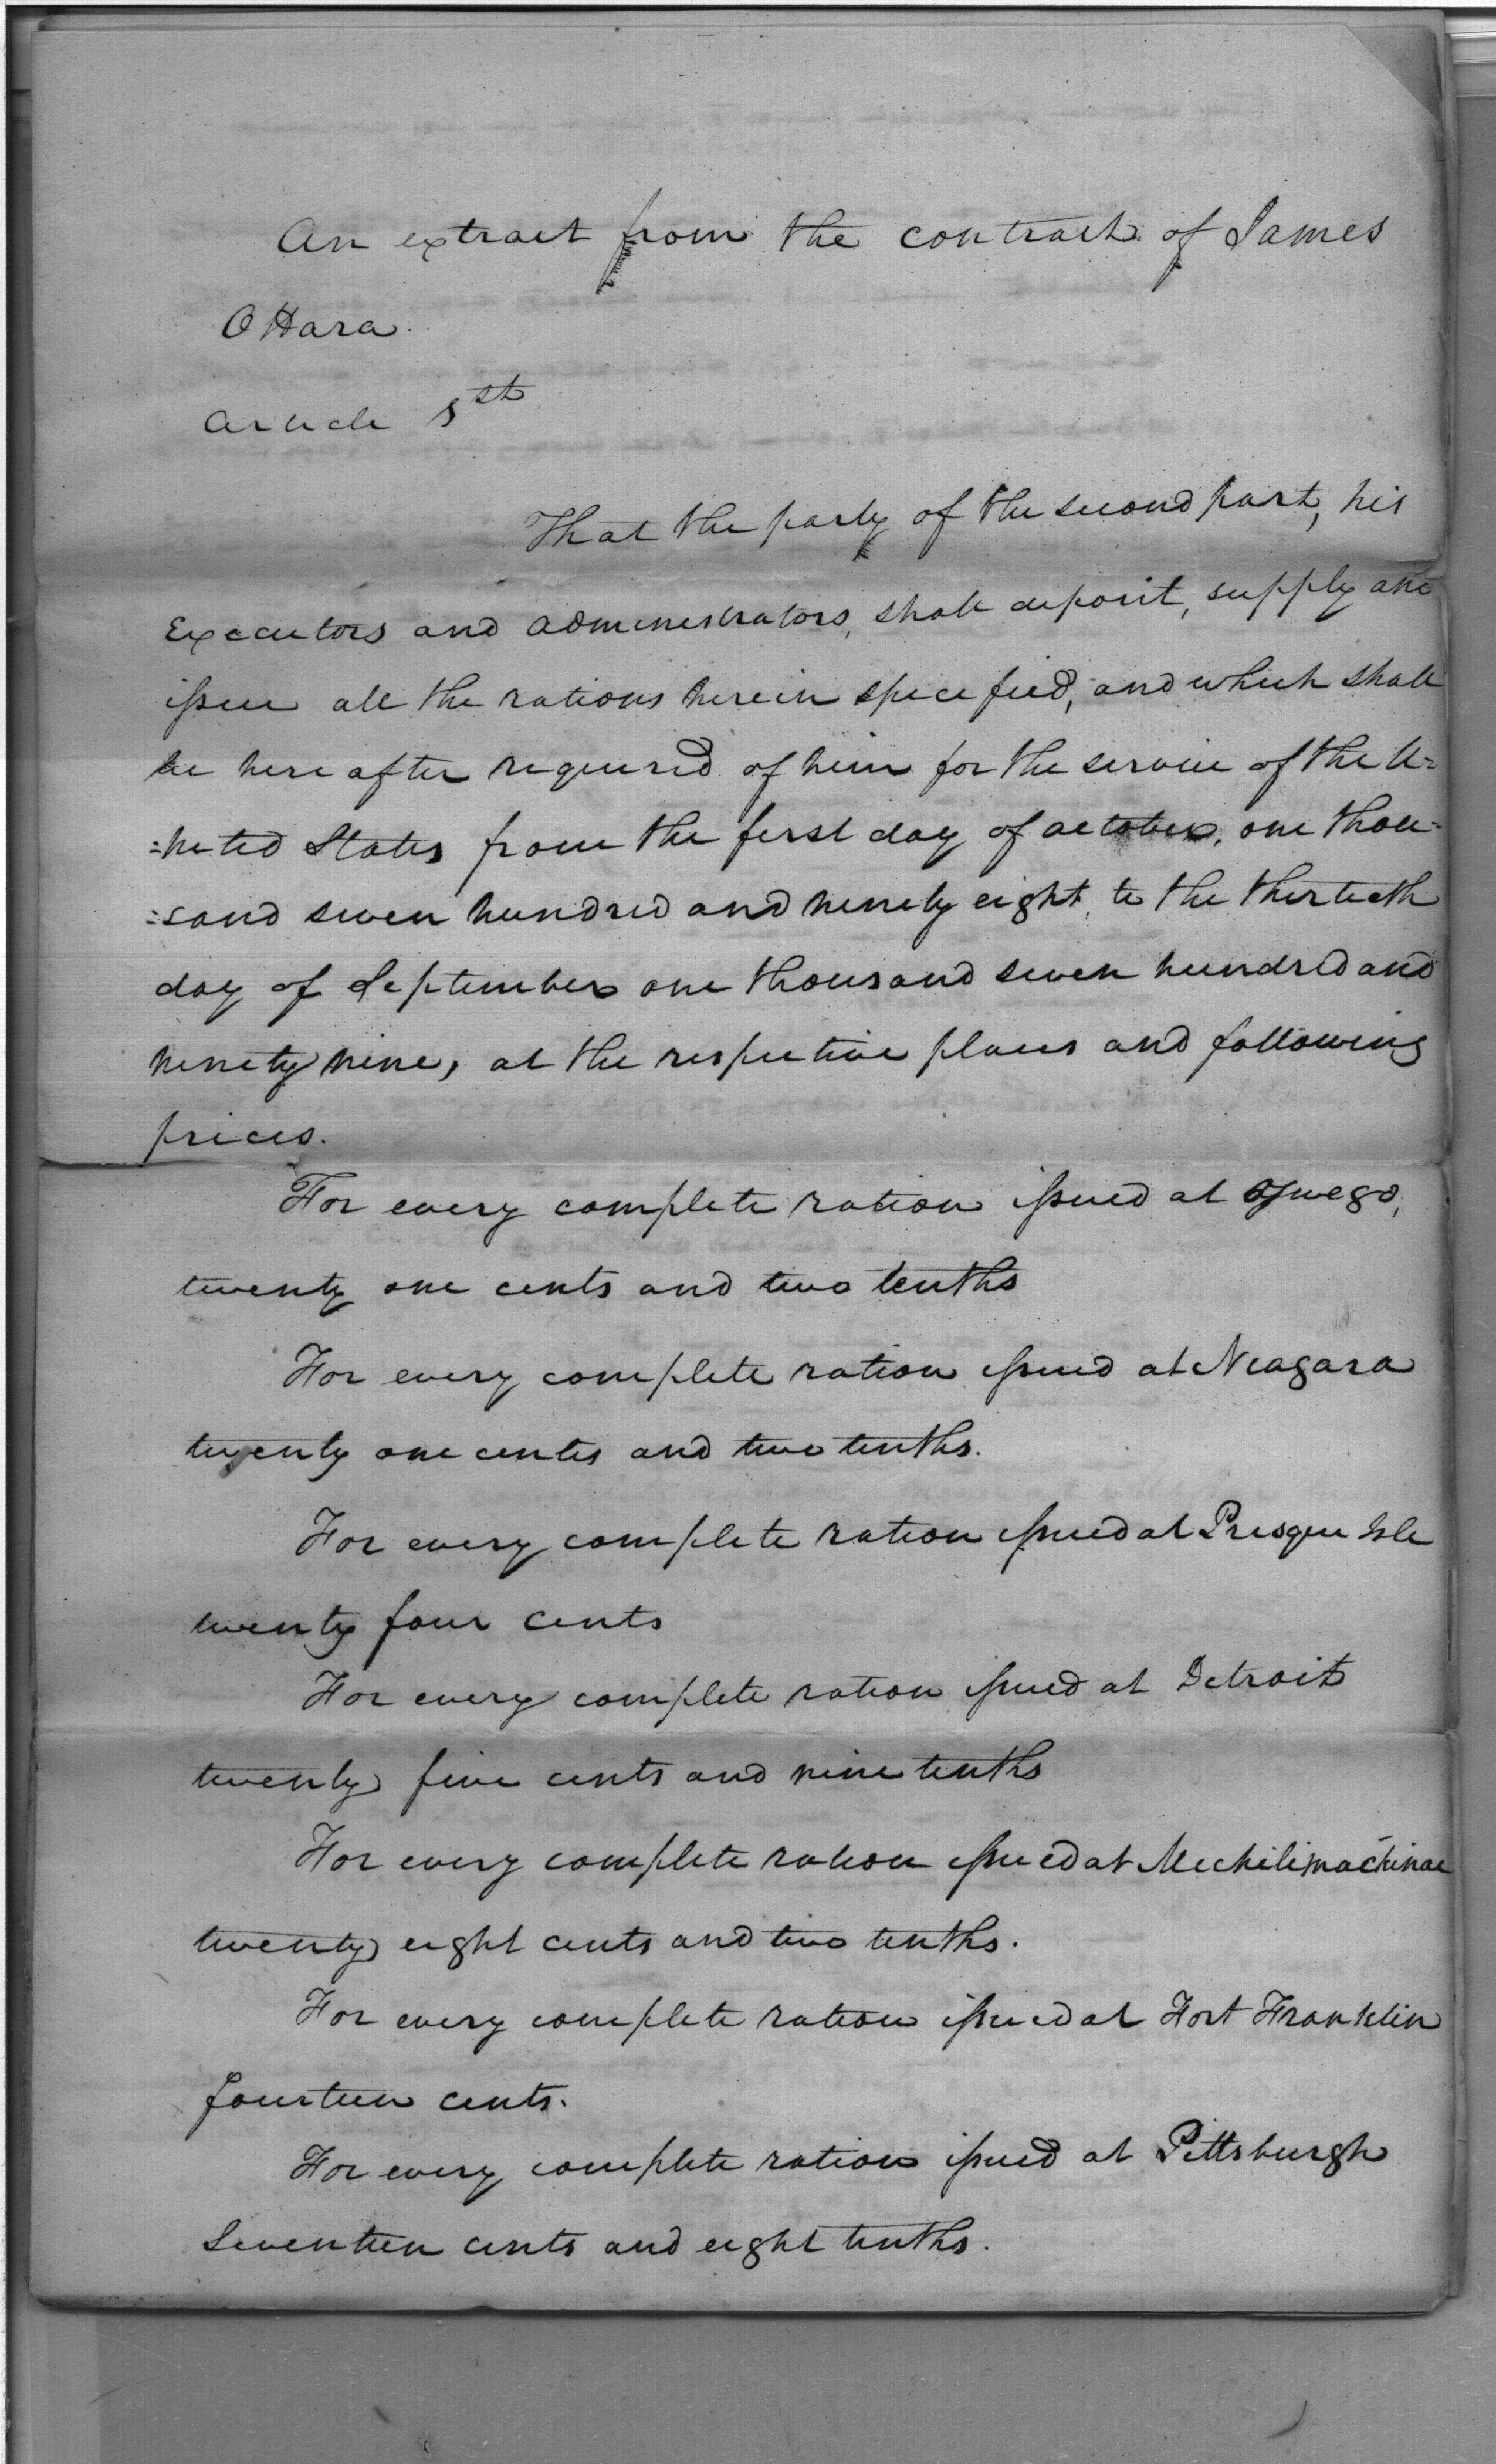 An extract from the contract of James
O Hara.
Article 1st
That the party of the second part, his
Executors and administrators, shall deposit, supply and
issue all the rations herein specified, and which shall
be here after required of him for the service of the U=
=nited States from the first day of october, one thou=
=sand seven hundred and ninety eight, to the thirtieth
day of September one thousand seven hundred and
ninety nine, at the respective places and following
prices.
For every complete ration issued at Oswego,
twenty one cents and two tenths
For every complete ration issued at Niagara
twenty one cents and two tenths.
For every complete ration issued at Presque Isle
twenty four cents
For every complete ration issued at Detroit
twenty five cents and nine tenths
For every complete ration issued at Michilimackinac
twenty eight cents and two tenths.
For every complete ration issued at Fort Franklin
fourteen cents.
For every complete ration issued at Pittsburgh
Seventeen cents and eight tenths.